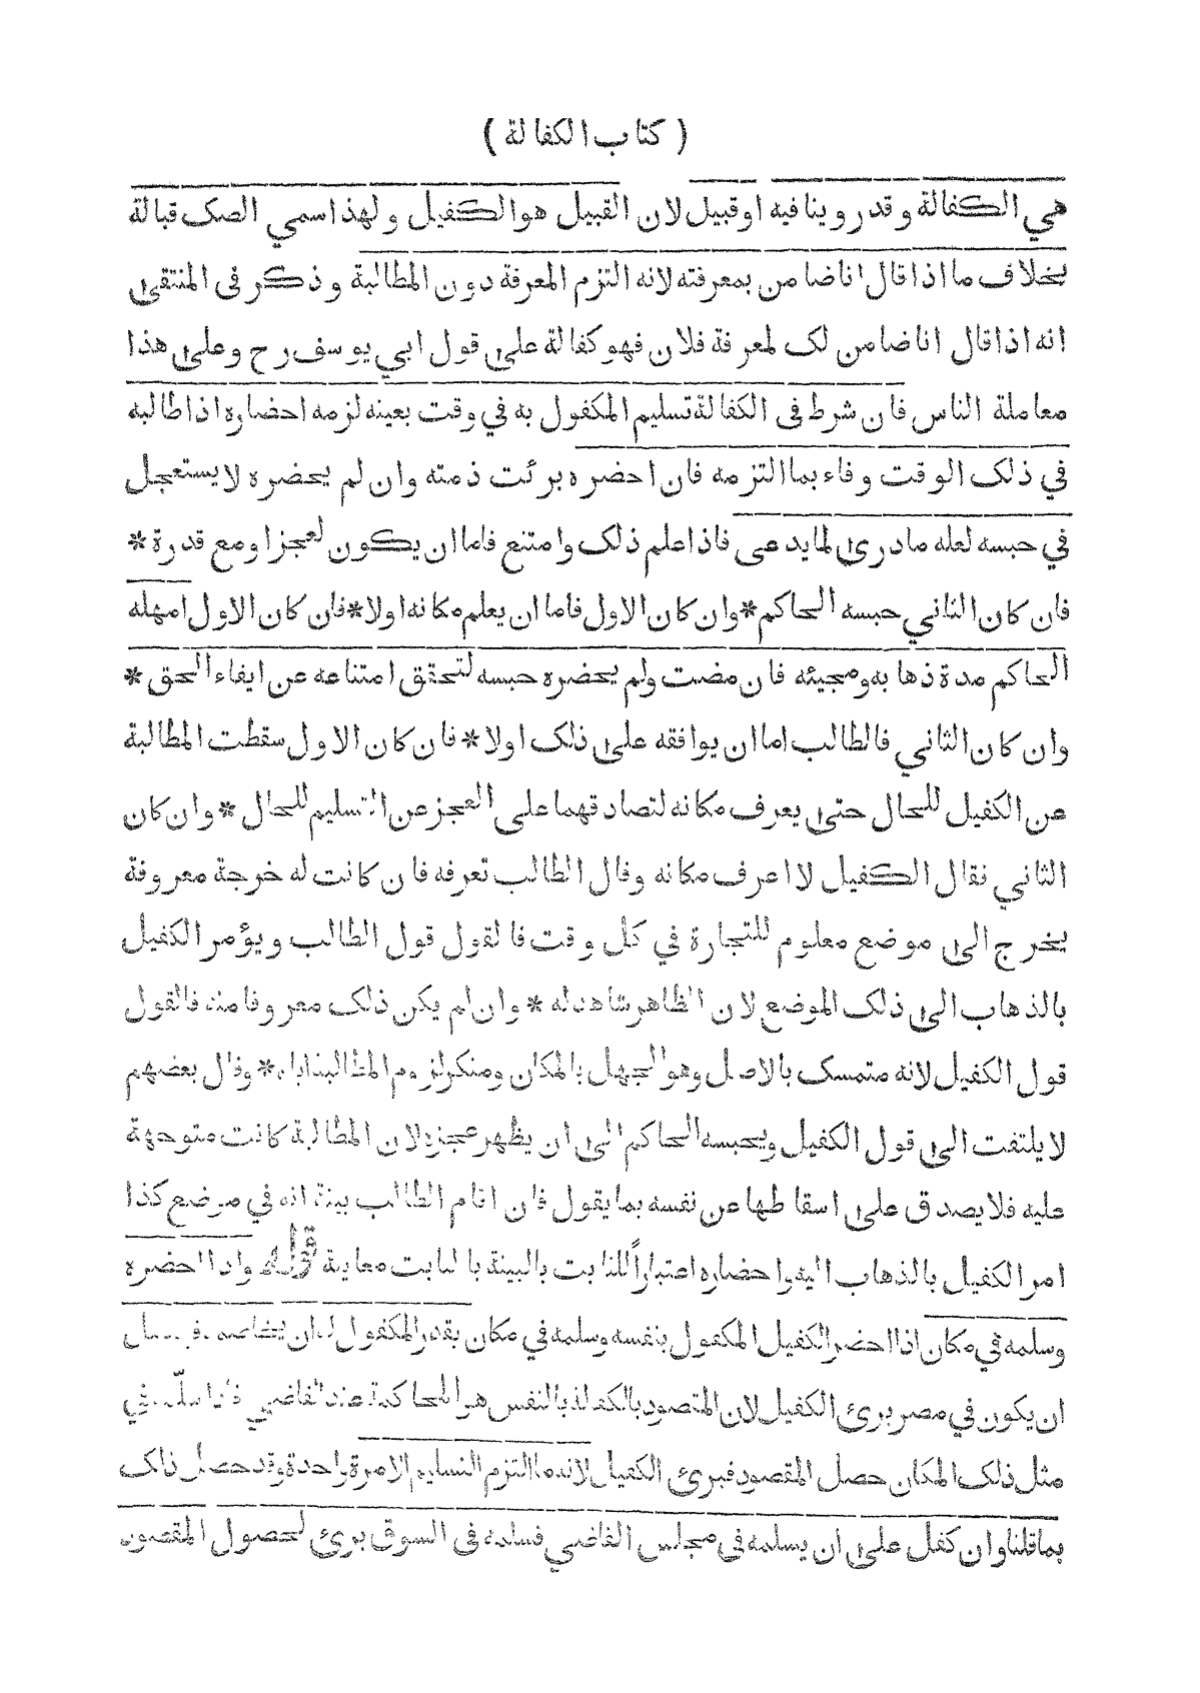 ( كتاب الكفالة )
هي الكفالة وقدروينا فيه اوقبيل لان القبيل هوالكفيل ولهذا سمي الصك قبالة
بخلاف ما اذا قال انا ضامن بمعرفته لانه التزم المعرفة دون المطالبة وذكر فى المنتقى
انه اذا قال انا ضامن لك لمعرفة فلان فهو كفالة على قول ابي يوسف رح وعلى هذا
معاملة الناس فان شرط فى الكفالة تسليم المكفول به في وقت بعينه لزمه احضاره اذا طالبه
في ذلك الوقت وفاء بما التزمه فان احضره برئت ذمته وان لم يحضره لا يستعجل
في حبسه لعله مادرى لمايدعى فاذا علم ذلك وامتنع فاما ان يكون لعجز اومع قدرة *
فان كان الثاني حبسه الحاكم * وان كان الاول فاما ان يعلم مكانه اولا * فان كان الاول امهله
الحاكم مدة ذهابه ومجيئه فان مضت ولم يحضره حبسه لتحقق امتناعه عن ايفاء الحق *
وان كان الثاني فالطالب اما ان يوافقه على ذلك اولا * فان كان الاول سقطت المطالبة
عن الكفيل للحال حتى يعرف مكانه لتصادقهما على العجز عن التسليم للحال * وان كان
الثاني نقال الكفيل لا اعرف مكانه وقال الطالب تعرفه فان كانت له خرجة معروفة
يخرج الى موضع معلوم للتجارة في كل وقت فالقول قول الطالب ويؤمر الكفيل
بالذهاب الى ذلك الموضع لان الظاهر شاهد له * وان لم يكن ذلك معروفا منه فالقول
قول الكفيل لانه متمسك بالاصل وهو الجهل بالمكان ومنكر لزوم المطالبة اياه * وقال بعضهم
لا يلتفت الى قول الكفيل ويحبسه الحاكم الى ان يظهر عجزه لان المطالبة كانت متوجهة
عليه فلا يصدق على اسقاطها عن نفسه بما يقول فان اقام الطالب بينة انه في موضع كذا
امر الكفيل بالذهاب اليه واحضاره اعتباراً للثابت بالبينة بالثابت معاينة قوله واذا احضره
وسلمه في مكان اذا احضر الكفيل المكفول بنفسه وسلمه في مكان يقدر المكفول له ان يخاصمه فيه مثل
ان يكون في مصر برئ الكفيل لان المقصود بالكفالة بالنفس هو المحاكمة عند القاضي فاذا سلّمه في
مثل ذلك المكان حصل المقصود فبرئ الكفيل لانه ما التزم التسليم الا مرة واحدة وقد حصل ذلك
بما قلنا وان كفل على ان يسلمه فى مجلس القاضي فسلمه فى السوق برئ لحصول المقصود